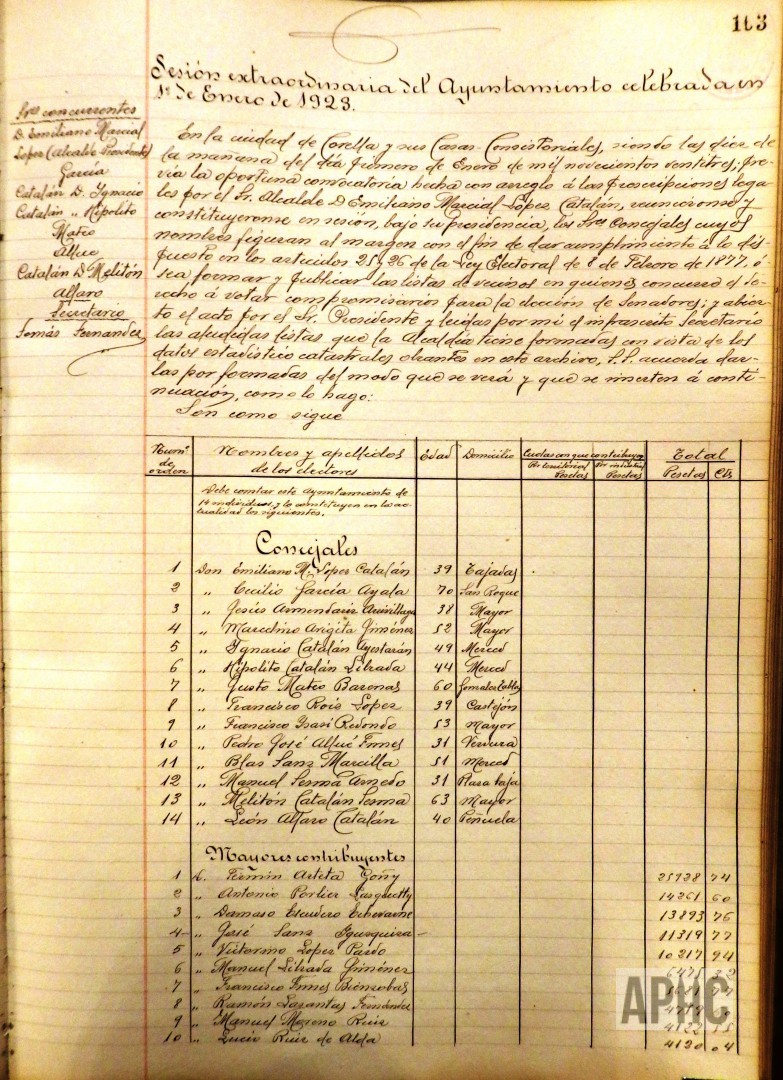 103
Sesión extraordinaria del Ayuntamiento celebrada en
1º de Enero de 1923.
Sres concurrentes
D. Emiliano Marcial
Lopez (Alcalde Presidente)
García
Catalán D. Ignacio
Catalán „ Hipolito
Mateo
Allué
Catalán D. Melitón
Alfaro
Secretario
Tomás Fernandez
En la ciudad de Corella y sus Casas-Consistoriales, siendo las diez de
la mañana del día primero de Enero de mil novecientos ventitres; pre-
vía la oportuna convocatoria hecha con arreglo á las prescripciones lega-
les por el Sr. Alcalde D. Emiliano Marcial López Catalán, reunieronse y
constituyeronse en sesión, bajo su presidencia, los Sres Concejales cuyos
nombres figuran al margen con el fin de dar cumplimiento á lo dis-
puesto en los articulos 25 y 26 de la Ley Electoral de 8 de Febrero de 1877. ó
sea formar y publicar las listas de vecinos en quienes concurre el de-
recho á votar compromisarios para la elección de Senadores; y abier-
to el acto por el Sr. Presidente y leidas por mi el infrascrito Secretario
las aludidas listas que la Alcaldía tiene formadas con vista de los
datos estadistico catastrales obrantes en este archivo, S.S. acuerda dar-
las por formadas del modo que se verá y que se insertan á conti-
nuación, como lo hago:
Son como sigue
Numº de orden Nombres y apellidos de los electores Edad Domicilio Cuotas con que contribuyen Total
Por territorial Pesetas Por industrial Pesetas Pesetas Cts
Debe constar este Ayuntamiento de
14 individuos, y lo constituyen en la ac-
tualidad los siguientes.
Concejales
1 Don Emiliano M. López Catalán 39 Tajadas
2 „ Cecilio García Ayala 70 San Roque
3 „ Jesús Armendariz Aurivillaga 38 Mayor
4 „ Marcelino Arigita Giménez 52 Mayor
5 „ Ygnacio Catalán Ayestarán 49 Merced
6 „ Hipolito Catalán Librada 44 Merced
7 „ Justo Mateo Baronas 60
8 „ Francisco Rois López 39 Castejón
9 „ Francisco Ysasi Redondo 53 Mayor
10 „ Pedro José Allué Ynnes 31 Verdura
11 „ Blas Sanz Marcilla 51 Merced
12 „ Manuel Sesma Arnedo 31 Plaza baja
13 „ Melitón Catalán Sesma 63 Mayor
14 „ León Alfaro Catalán 40 Peñuela
Mayores contribuyentes
1 D. Fermin Arteta Goñy 25928 74
2 „ Antonio Porlier 14261 60
3 „ Damaso Escudero Echevarne 13893 76
4 „ José Sanz 11319 77
5 „ Victorino Lopez Pardo 10217 94
6 „ Manuel Librada Giménez
7 „ Francisco Ynnes Bienzobas
8 „ Ramón Lasantas Fernández
9 „ Manuel Moreno Ruiz 4122
10 „ Lucio Ruiz de Alda 4120 04
APHC